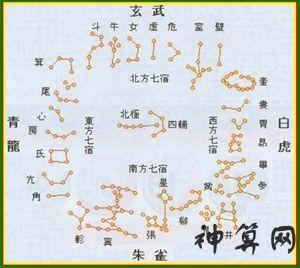 玄武
斗 牛 女 虛 危 室 壁
箕
尾
心
房
氐
亢
角
奎
婁
胃
昴
畢
觜
參
北方七宿
東方七宿
西方七宿
南方七宿
北極
四輔
青龍
白虎
星
柳
井
張
翼
軫
朱雀
神算网